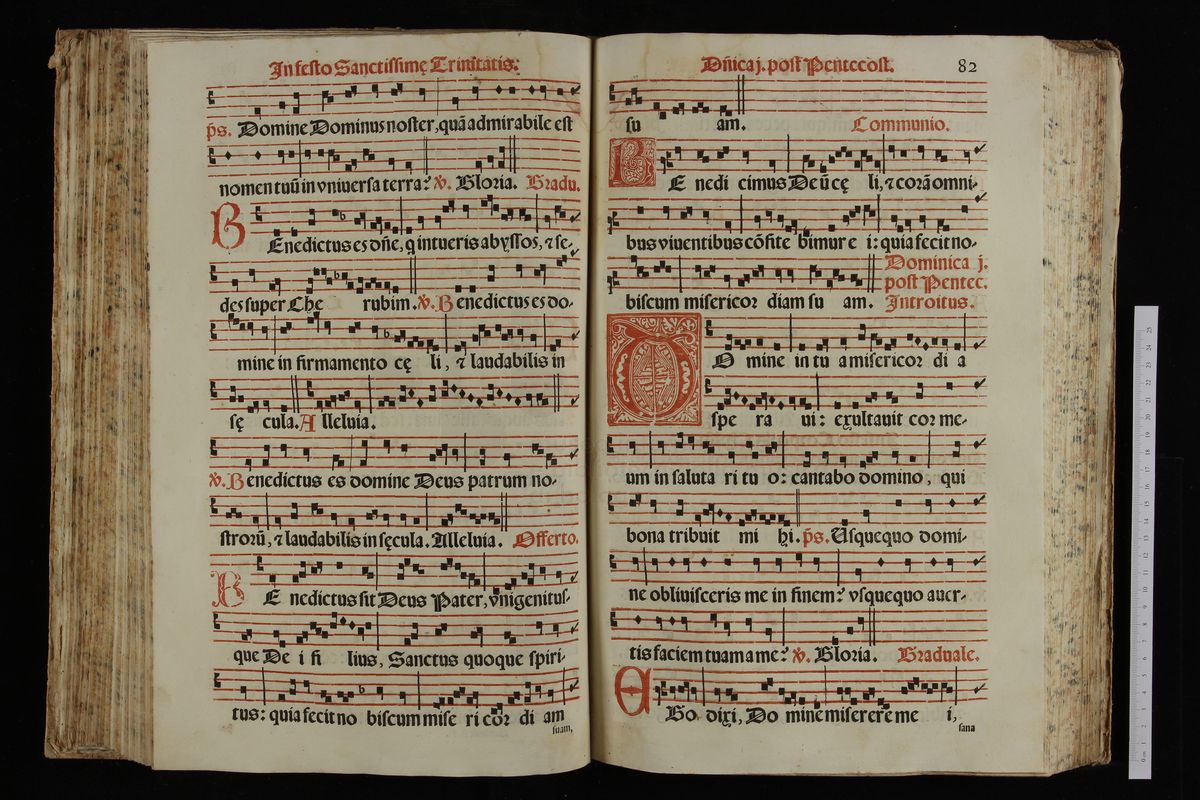 In festo Sanctissimę Trinitatis.
p̄s. Domine Dominus noster, quā admirabile est
nomen tuū in vniuersa terra? ℣. Gloria. Gradu.
BEnedictus es dn̄e, q intueris abyssos, ⁊ se-
des super Che rubim. ℣. Benedictus es do-
mine in firmamento cę li, ⁊ laudabilis in
sę cula. Alleluia.
℣. Benedictus es domine Deus patrum no-
strorū, ⁊ laudabilis in sęcula. Alleluia. Offerto.
BE nedictus sit Deus Pater, vnigenitus-
que De i fi lius, Sanctus quoque spiri-
tus: quia fecit no biscum mise ri cor di am
suam,
Dn̄ica j. post Pentecost. 82
su am. Communio.
BE nedi cimus Deū cę li, ⁊ corā omni-
bus viuentibus cōfite bimur e i: quia fecit no-
biscum misericor diam su am. Dominica j.
post Pentec.
Introitus.
DO mine in tu a misericor di a
spe ra ui: exultauit cor me-
um in saluta ri tu o: cantabo domino, qui
bona tribuit mi hi. p̄s. Usquequo domi-
ne obliuisceris me in finem? vsquequo auer-
tis faciem tuam a me? ℣. Gloria. Graduale.
EGo dixi, Do mine miserere me i,
sana
0 cm 1 2 3 4 5 6 7 8 9 10 11 12 13 14 15 16 17 18 19 20 21 22 23 24 25